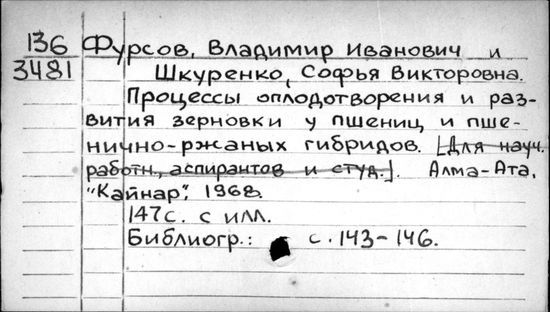 136 Фурсов, Владимир Иванович и
3481 Шкуренко, Софья Викторовна.
Процессы оплодотворения и раз-
вития зерновки у пшениц и пше-
нично-ржаных гибридов. [Для науч.
работн., аспирантов и студ.]. Алма-Ата,
"Кайнар", 1968.
147с. с илл.
Библиогр.: с. 143-146.